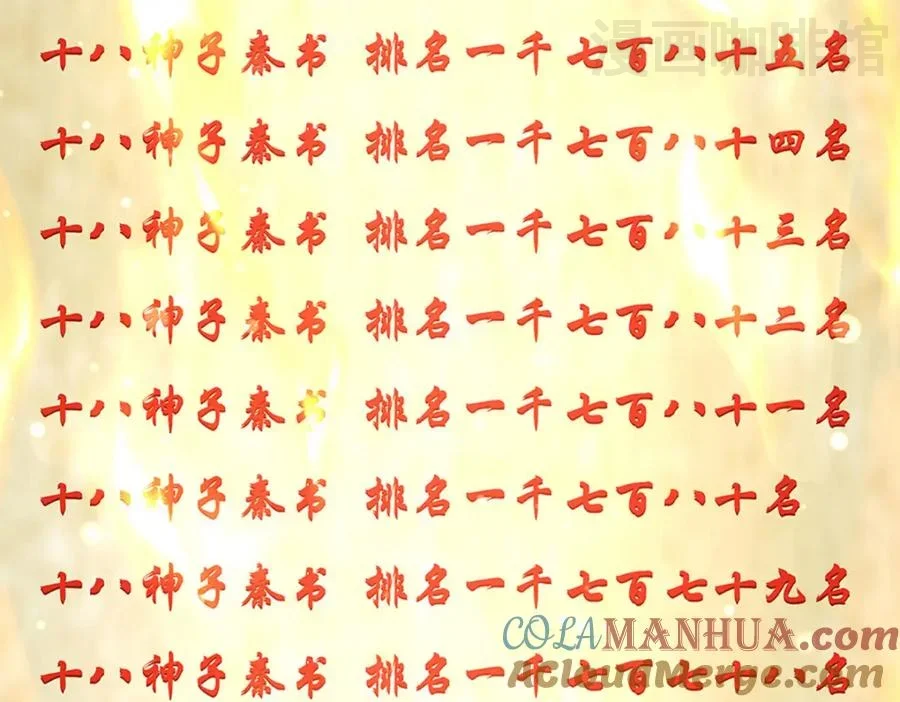 漫画咖啡馆
十八神子秦书 排名一千七百八十五名
十八神子秦书 排名一千七百八十四名
十八神子秦书 排名一千七百八十三名
十八神子秦书 排名一千七百八十二名
十八神子秦书 排名一千七百八十一名
十八神子秦书 排名一千七百八十名
十八神子秦书 排名一千七百七十九名
COLAMANHUA.com
十八神子秦书 排名一千七百七十八名
ACloudMerge.com